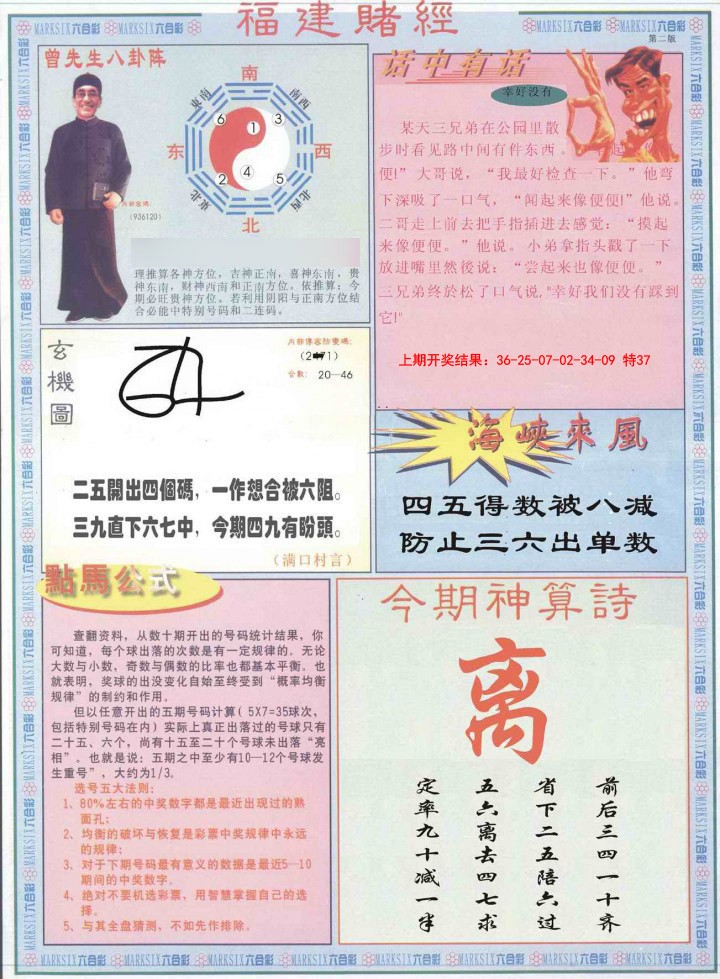 福建賭經
MARKSIX六合彩 MARKSIX六合彩 MARKSIX六合彩 MARKSIX六合彩
第二版
曾先生八卦阵
南
東南
南西
6
1
3
东
西
2
4
5
東北
北西
北
(936120)
理推算各神方位，吉神正南，喜神东南，贵
神东南，财神西南和正南方位。依推算：今
期必旺贵神方位。若利用阴阳与正南方位结
合必能中特别号码和二连码。
话中有话
幸好没有
某天三兄弟在公园里散
步时看见路中间有件东西。
便!”大哥说，“我最好检查一下。”他弯
下深吸了一口气，“闻起来像便便!”他说。
二哥走上前去把手指插进去感觉：“摸起
来像便便。”他说。小弟拿指头戳了一下
放进嘴里然後说：“尝起来也像便便。”
三兄弟终於松了口气说,"幸好我们没有踩到
它!"
上期开奖结果：36-25-07-02-34-09 特37
玄機圖
内部傳密防覽碼：
合數：20—46
二五開出四個碼，一作想合被六阻。
三九直下六七中，今期四九有盼頭。
（满口村言）
海峽來風
四五得数被八减
防止三六出单数
點馬公式
查翻资料，从数十期开出的号码统计结果，你
可知道，每个球出落的次数是有一定规律的。无论
大数与小数，奇数与偶数的比率也都基本平衡。也
就表明，奖球的出没变化自始至终受到“概率均衡
规律”的制约和作用。
但以任意开出的五期号码计算( 5X7=35球次，
包括特别号码在内）实际上真正出落过的号球只有
二十五、六个，尚有十五至二十个号球未出落“亮
相”。也就是说：五期之中至少有10—12个号球发
生重号”，大约为1/3。
选号五大法则：
1、80%左右的中奖数字都是最近出现过的熟
面孔；
2、均衡的破坏与恢复是彩票中奖规律中永远
的规律；
3、对于下期号码最有意义的数据是最近5—10
期间的中奖数字。
4、绝对不要机选彩票，用智慧掌握自己的选
择。
5、与其全盘猜测，不如先作排除。
今期神算詩
离
前后三四一十齐
省下二五陪六过
五六离去四七求
定率九十减一半